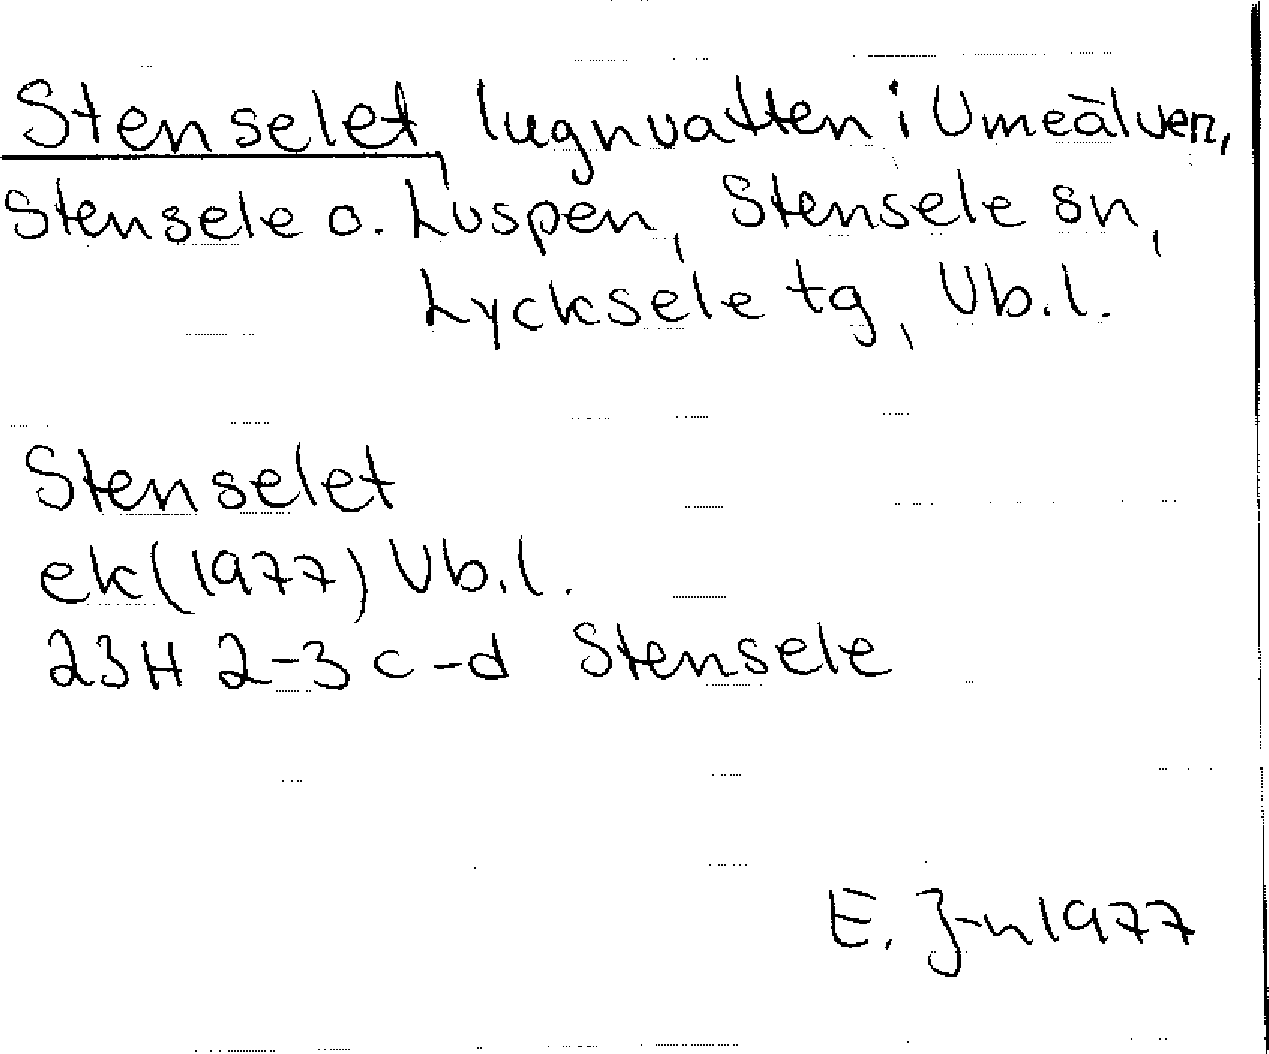 Stenselet, lugnvatten i Umeälven,
Stensele o. Luspen, Stensele sn,
Lycksele tg, Vb.l.
Stenselet
ek (1977) Vb.l.
23H 2-3 c-d Stensele
E. J-n 1977